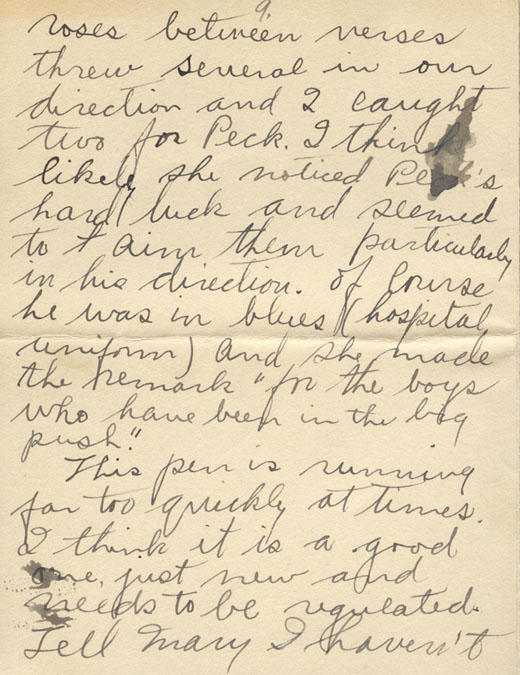 9
roses between verses
threw several in our
direction and I caught
two for Peck. I think
likely she noticed Peck's
hard luck and seemed
to aim them particularly
in his direction. Of course
he was in blues (hospital
uniform) and she made
the remark "for the boys
who have been in the big
push."
This pen is running
far too quickly at times.
I think it is a good
one, just new and
needs to be regulated.
Tell Mary I haven't